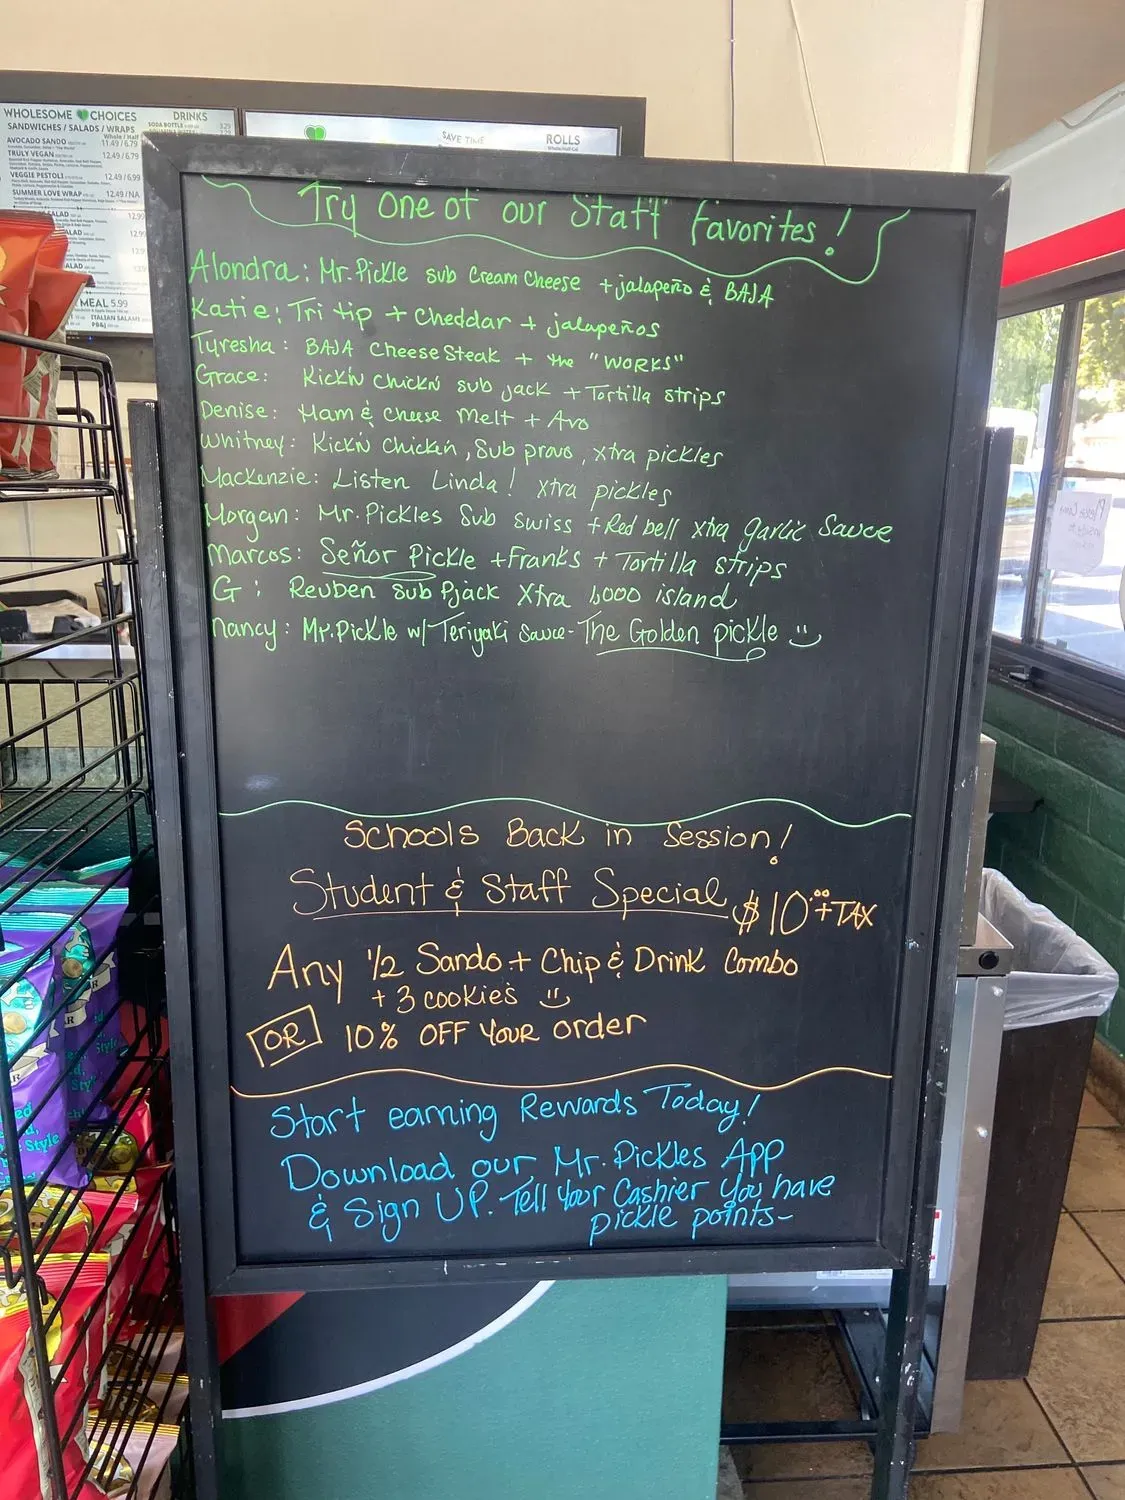 WHOLESOME CHOICES
SANDWICHES / SALADS / WRAPS
Whole / Half
AVOCADO SANDO 11.49 / 6.79
TRULY VEGAN 12.49 / 6.79
VEGGIE PESTOLI 12.49 / 6.99
SUMMER LOVE WRAP 12.49 / NA
SALAD 12.99
MEAL 5.99
ITALIAN SALAME
PB&J
DRINKS
SODA BOTTLE 3.25
SAVE TIME
ROLLS
Try One of our Staff Favorites!
Alondra: Mr. Pickle sub Cream Cheese + jalapeño & BAJA
Katie: Tri tip + Cheddar + jalapeños
Tyresha: BAJA Cheese Steak + the "WORKS"
Grace: Kick'N Chick'N sub jack + Tortilla strips
Denise: Ham & Cheese Melt + Avo
Whitney: Kick'N Chicken, Sub provo, xtra pickles
Mackenzie: Listen Linda! xtra pickles
Morgan: Mr. Pickles Sub Swiss + Red bell xtra garlic sauce
Marcos: Señor Pickle + Franks + Tortilla strips
G: Reuben sub Pjack Xtra 1,000 island
nancy: Mr. Pickle w/ Teriyaki Sauce - The Golden pickle
Schools Back in Session!
Student & Staff Special $10.00 + TAX
Any 1/2 Sando + Chip & Drink Combo
+ 3 cookies
OR 10% OFF YOUR order
Start earning Rewards Today!
Download our Mr. Pickles APP
& Sign UP. Tell Your Cashier You have
pickle points-